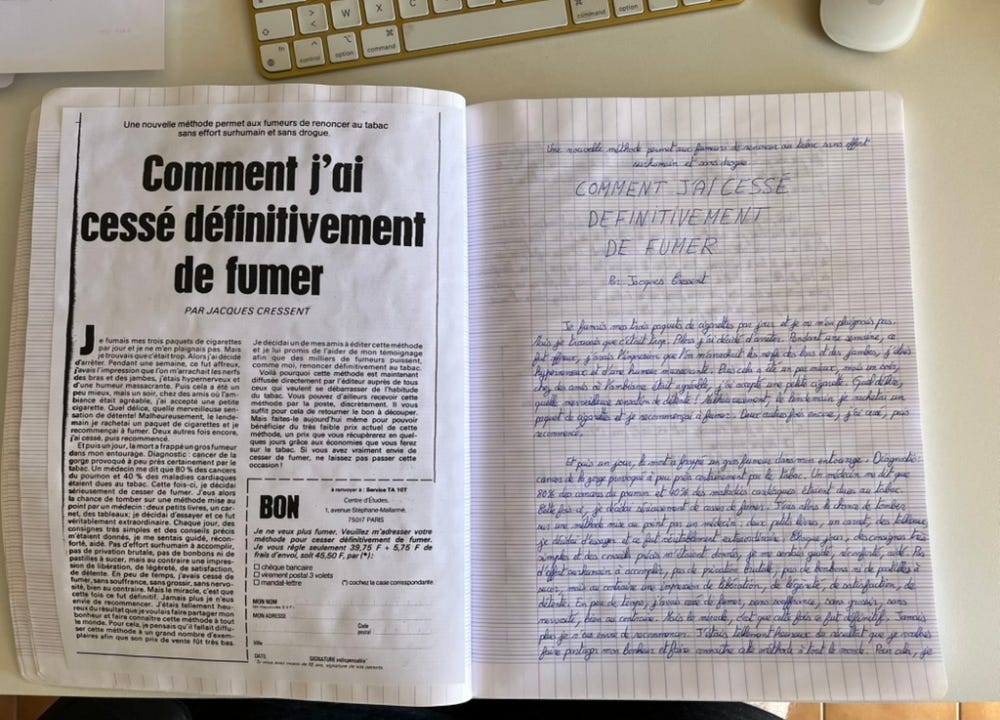 W
X
C
fn
control
option
command
command
option
Une nouvelle méthode permet aux fumeurs de renoncer au tabac
sans effort surhumain et sans drogue.
Comment j'ai
cessé définitivement
de fumer
PAR JACQUES CRESSENT
Je fumais mes trois paquets de cigarettes
par jour et je ne m'en plaignais pas. Mais
je trouvais que c'était trop. Alors j'ai décidé
d'arrêter. Pendant une semaine, ce fut affreux,
j'avais l'impression que l'on m'arrachait les nerfs
des bras et des jambes, j'étais hypernerveux et
d'une humeur massacrante. Puis cela a été un
peu mieux, mais un soir, chez des amis où l'am-
biance était agréable, j'ai accepté une petite
cigarette. Quel délice, quelle merveilleuse sen-
sation de détente! Malheureusement, le lende-
main je rachetai un paquet de cigarettes et je
recommençai à fumer. Deux autres fois encore,
j'ai cessé, puis recommencé.
Et puis un jour, la mort a frappé un gros fumeur
dans mon entourage. Diagnostic : cancer de la
gorge provoqué à peu près certainement par le
tabac. Un médecin me dit que 80 % des cancers
du poumon et 40 % des maladies cardiaques
étaient dues au tabac. Cette fois-ci, je décidai
sérieusement de cesser de fumer. J'eus alors
la chance de tomber sur une méthode mise au
point par un médecin : deux petits livres, un car-
net, des tableaux; je décidai d'essayer et ce fut
véritablement extraordinaire. Chaque jour, des
consignes très simples et des conseils précis
m'étaient donnés, je me sentais guidé, récon-
forté, aidé. Pas d'effort surhumain à accomplir,
pas de privation brutale, pas de bonbons ni de
pastilles à sucer, mais au contraire une impres-
sion de libération, de légèreté, de satisfaction,
de détente. En peu de temps, j'avais cessé de
fumer, sans souffrance, sans grossir, sans nervo-
sité, bien au contraire. Mais le miracle, c'est que
cette fois ce fut définitif. Jamais plus je n'eus
envie de recommencer. J'étais tellement heu-
reux du résultat que je voulais faire partager mon
bonheur et faire connaître cette méthode à tout
le monde. Pour cela, je pensais qu'il fallait diffu-
ser cette méthode à un grand nombre d'exem-
plaires afin que son prix de vente fût très bas.
Je décidai un de mes amis à éditer cette méthode
et je lui promis de l'aider de mon témoignage
afin que des milliers de fumeurs puissent,
comme moi, renoncer définitivement au tabac.
Voilà pourquoi cette méthode est maintenant
diffusée directement par l'éditeur auprès de tous
ceux qui veulent se débarrasser de l'habitude
du tabac. Vous pouvez d'ailleurs recevoir cette
méthode par la poste, discrètement. Il vous
suffit pour cela de retourner le bon à découper.
Mais faites-le aujourd'hui même pour pouvoir
bénéficier du très faible prix actuel de cette
méthode, un prix que vous récupérerez en quel-
ques jours grâce aux économies que vous ferez
sur le tabac. Si vous avez vraiment envie de
cesser de fumer, ne laissez pas passer cette
occasion !
BON
à renvoyer à : Service TA
Centre d'Études,
1, avenue Stéphane-Mallarmé,
75017 PARIS
Je ne veux plus fumer. Veuillez m'adresser votre
méthode pour cesser définitivement de fumer.
Je vous règle seulement 39,75 F + 5,75 F de
frais d'envoi, soit 45,50 F, par (*):
chèque bancaire
virement postal 3 volets
mandat-lettre
(*) cochez la case correspondante
MON NOM
MON ADRESSE
Code
postal
Ville
DATE
SIGNATURE indispensable*
Une nouvelle méthode permet aux fumeurs de renoncer au tabac sans effort
surhumain et sans drogue
COMMENT J'AI CESSÉ
DEFINITIVEMENT
DE FUMER
Par Jacques Cressent
Je fumais mes trois paquets de cigarettes par jour et je ne m'en plaignais pas.
Mais je trouvais que c'était trop. Alors j'ai décidé d'arrêter. Pendant une semaine, ce
fut affreux, j'avais l'impression que l'on m'arrachait les nerfs des bras et des jambes, j'étais
hypernerveux et d'une humeur massacrante. Puis cela a été un peu mieux, mais un soir,
chez des amis où l'ambiance était agréable, j'ai accepté une petite cigarette. Quel délice,
quelle merveilleuse sensation de détente ! Malheureusement, le lendemain je rachetai un
paquet de cigarette et je recommençai à fumer. Deux autres fois encore, j'ai cessé, puis
recommencé.
Et puis un jour, la mort a frappé un gros fumeur dans mon entourage. Diagnostic :
cancer de la gorge provoqué à peu près certainement par le tabac. Un médecin me dit que
80% des cancers du poumon et 40% des maladies cardiaques étaient dues au tabac
Cette fois-ci, je décidai sérieusement de cesser de fumer. J'eus alors la chance de tomber
sur une méthode mise au point par un médecin : deux petits livres, un carnet, des tableaux,
je décidai d'essayer et ce fut véritablement extraordinaire. Chaque jour, des consignes très
simples et des conseils précis m'étaient donnés, je me sentais guidé, réconforté, aidé. Pas
d'effort surhumain à accomplir, pas de privation brutale, pas de bonbons ni de pastilles à
sucer, mais au contraire une impression de libération, de légèreté, de satisfaction, de
détente. En peu de temps, j'avais cessé de fumer, sans souffrance, sans grossir, sans
nervosité, bien au contraire. Mais le miracle, c'est que cette fois ce fut définitif. Jamais
plus je n'eus envie de recommencer. J'étais tellement heureux du résultat que je voulais
faire partager mon bonheur et faire connaître cette méthode à tout le monde. Pour cela, je